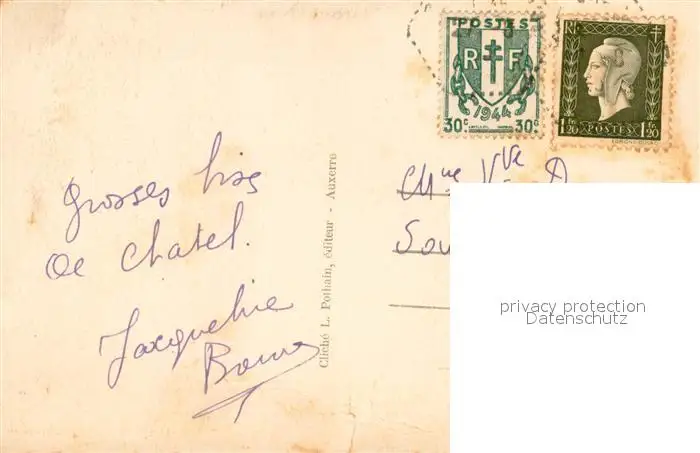 POSTES
RF
1944
30c 30c
RF
1Fr.20 POSTES 1Fr.20
grosses bises
de Chatel.
Jacqueline
Cliché L. Pothain, éditeur - Auxerre
Mme Vve D
Sou
privacy protection
Datenschutz